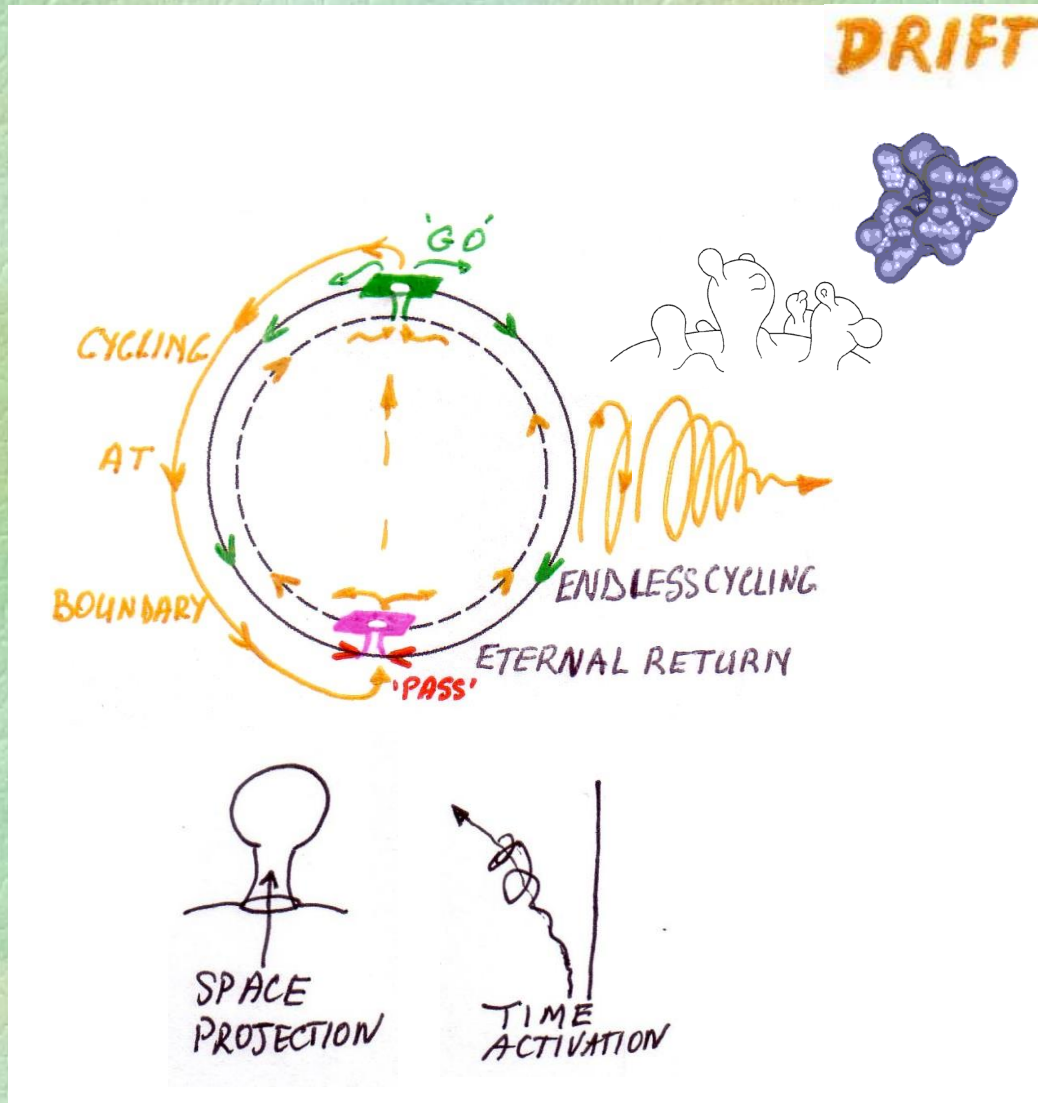 DRIFT
'GO'
CYCLING
AT
BOUNDARY
ENDLESS CYCLING
ETERNAL RETURN
'PASS'
SPACE
PROJECTION
TIME
ACTIVATION